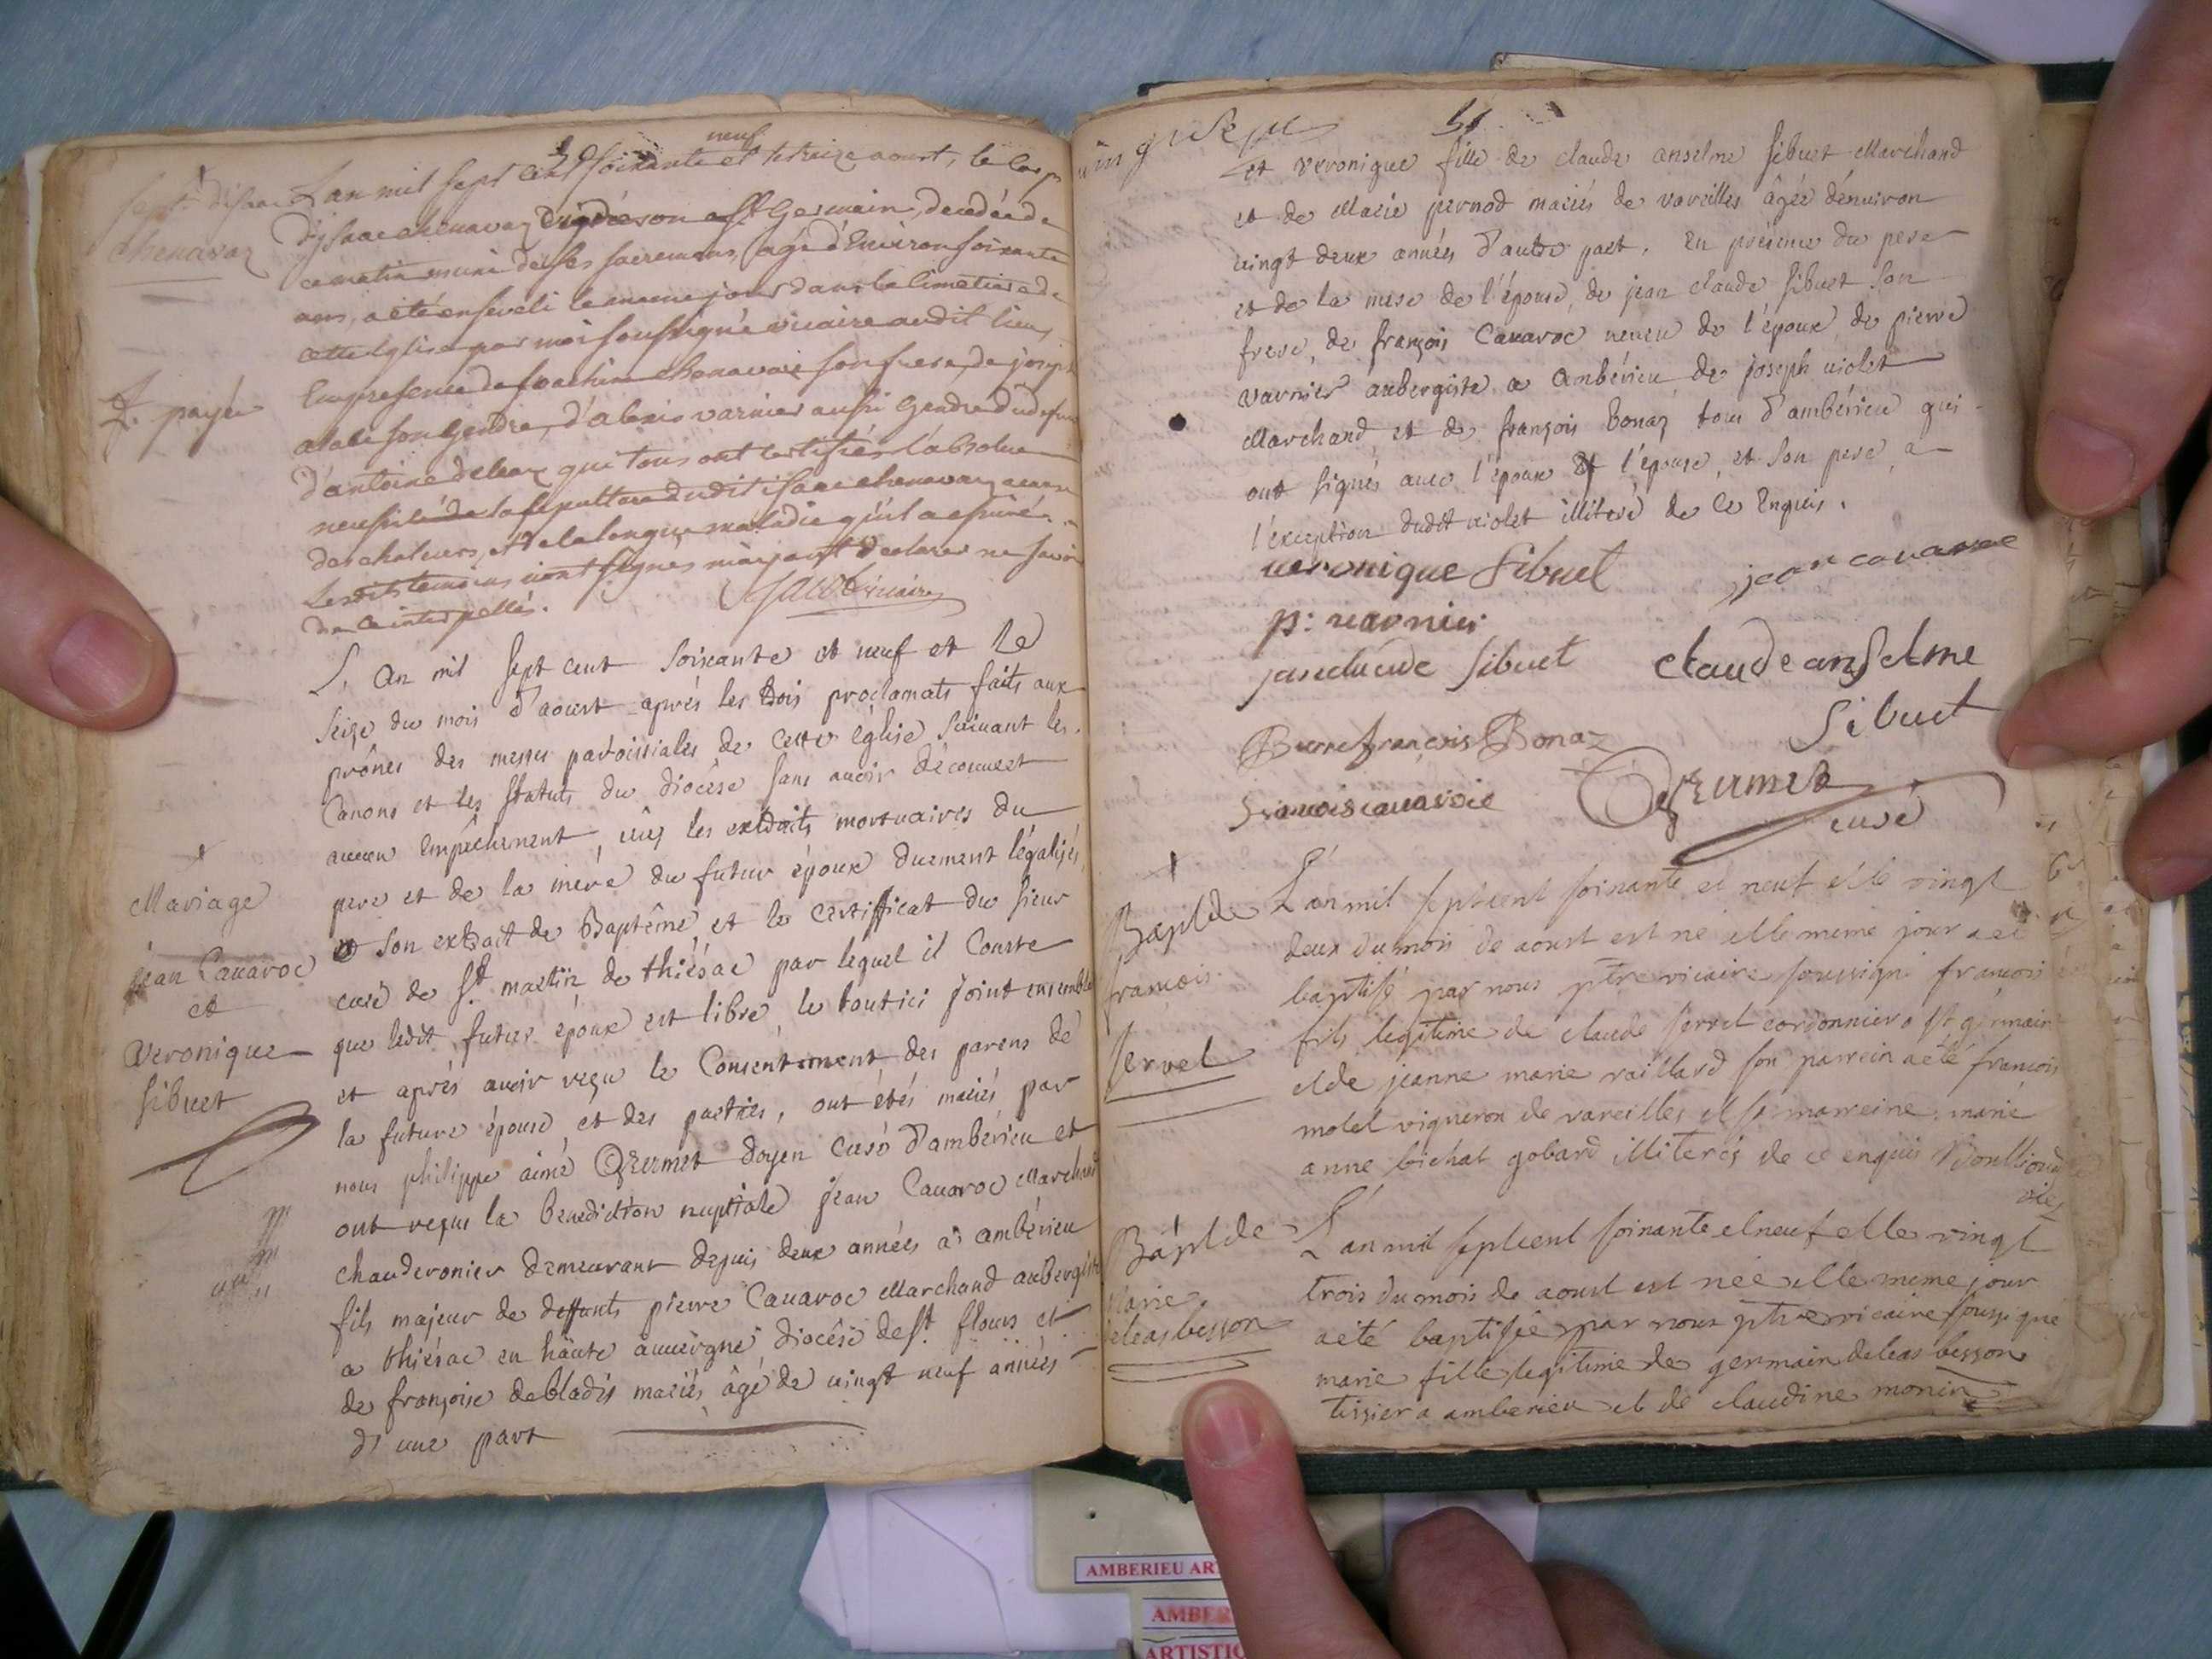 sept. d'isaac
chenavaz
neuf
L'an mil sept cent soixante et le treize aoust, le corps
d'isaac chenavaz vigneron a st Germain, decedé de
ce matin muni de ses sacremens, agé d'Environ soixante
ans, a été enseveli le meme jour dans le cimetiere de
cette eglise par moi soussigné vicaire audit lieu
En presence de joachim chenavaz son frere, de joseph
payée
son gendre, d'alexis varnier aussi Gendre du defunt
d'antoine deleaz qui tous ont certifiés l'absolue
necessité de la sepulture dudit isaac chenavaz a cause
des chaleurs, et de la longue maladie qu'il a essuié.
Lesdits temoins n'ont signés maijant declarer ne savoir
de ce interpellés.
vicaire
L'An mil sept cent soixante et neuf et le
seize du mois d'aoust après les trois proclamats faits aux
prônes des messes paroissiales de cette église suivant les
Canons et les statuts du diocèse sans avoir découvert
aucun Empêchement, vûs les extraits mortuaires du
pere et de la mere du futur époux duement légalisés
et son extrait de Baptême et le certifficat du sieur
curé de st. martin de thiésac par lequel il Conste
que ledit futur époux est libre, le tout ici joint ensemble
et après avoir reçu le Consentement des parens de
la future épouse et des parties, ont étés mariés par
nous philippe aimé Grumet doyen Curé d'ambérieu et
ont reçus la benediction nuptiale jean Cavaroc Marchand
chauderonier demeurant depuis deux années à ambérieu
fils majeur de deffunts pierre Cavaroc Marchand aubergiste
a thiésac en haute auvergne, diocèse de st. flour et
de françoise debladis mariés, âgé de vingt neuf années
d'une part
Mariage
jean Cavaroc
et
Veronique
sibuet
51
et veronique fille de claude anselme sibuet Marchand
et de Marie pernod mariés de vareilles âgée d'environ
vingt deux années d'autre part. En présence du pere
et de la mere de l'épouse, de jean claude sibuet son
frere, de françois Cavaroc neveu de l'époux de pierre
varnier aubergiste a Ambérieu de joseph violet
Marchand et de françois bonaz tous d'ambérieu qui
ont signés avec l'époux et l'épouse, et son pere, a
l'exception dudit violet illiteré de ce Enquis.
veronique sibuet
jean cavaroc
p: varnier
sibuet
claude anselme
sibuet
Pierre françois Bonaz
francois cavaroc
Grumet
curé
Bapt de
francois
servel
L'an mil sept cent soixante et neuf et le vingt
deux du mois de aoust est né et le meme jour a été
baptisé par nous ptre vicaire soussigné françois
fils legitime de claude servel cordonnier a st germain
et de jeanne marie raillard son parrein a été francois
molel vigneron de vareilles et sa marreine, marie
anne bichat gobard illiterés de ce enquis
vic
Bapt de
Marie
deleas besson
L'an mil sept cent soixante et neuf et le vingt
trois du mois de aoust est née et le meme jour
a été baptisée par nous ptre vicaire soussigné
marie fille legitime de germain deleas besson
tissier a amberieu et de claudine monin
AMBERIEU
ARTISTIQ